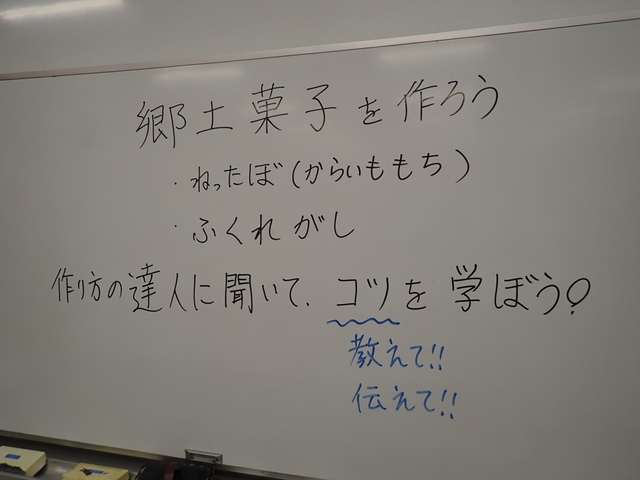 郷土菓子を作ろう
・ねったぼ(からいももち)
・ふくれがし
作り方の達人に聞いて、コツを学ぼう!
教えて!!
伝えて!!